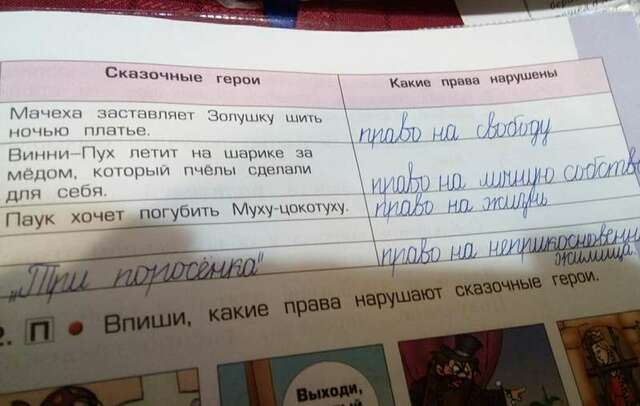 Сказочные герои
Какие права нарушены
Мачеха заставляет Золушку шить
ночью платье.
право на свободу
Винни-Пух летит на шарике за
мёдом, который пчёлы сделали
для себя.
право на личную собстве
Паук хочет погубить Муху-цокотуху.
право на жизнь
„Три поросёнка"
право на неприкосновенн
жилища.
2. П • Впиши, какие права нарушают сказочные герои.
Выходи,